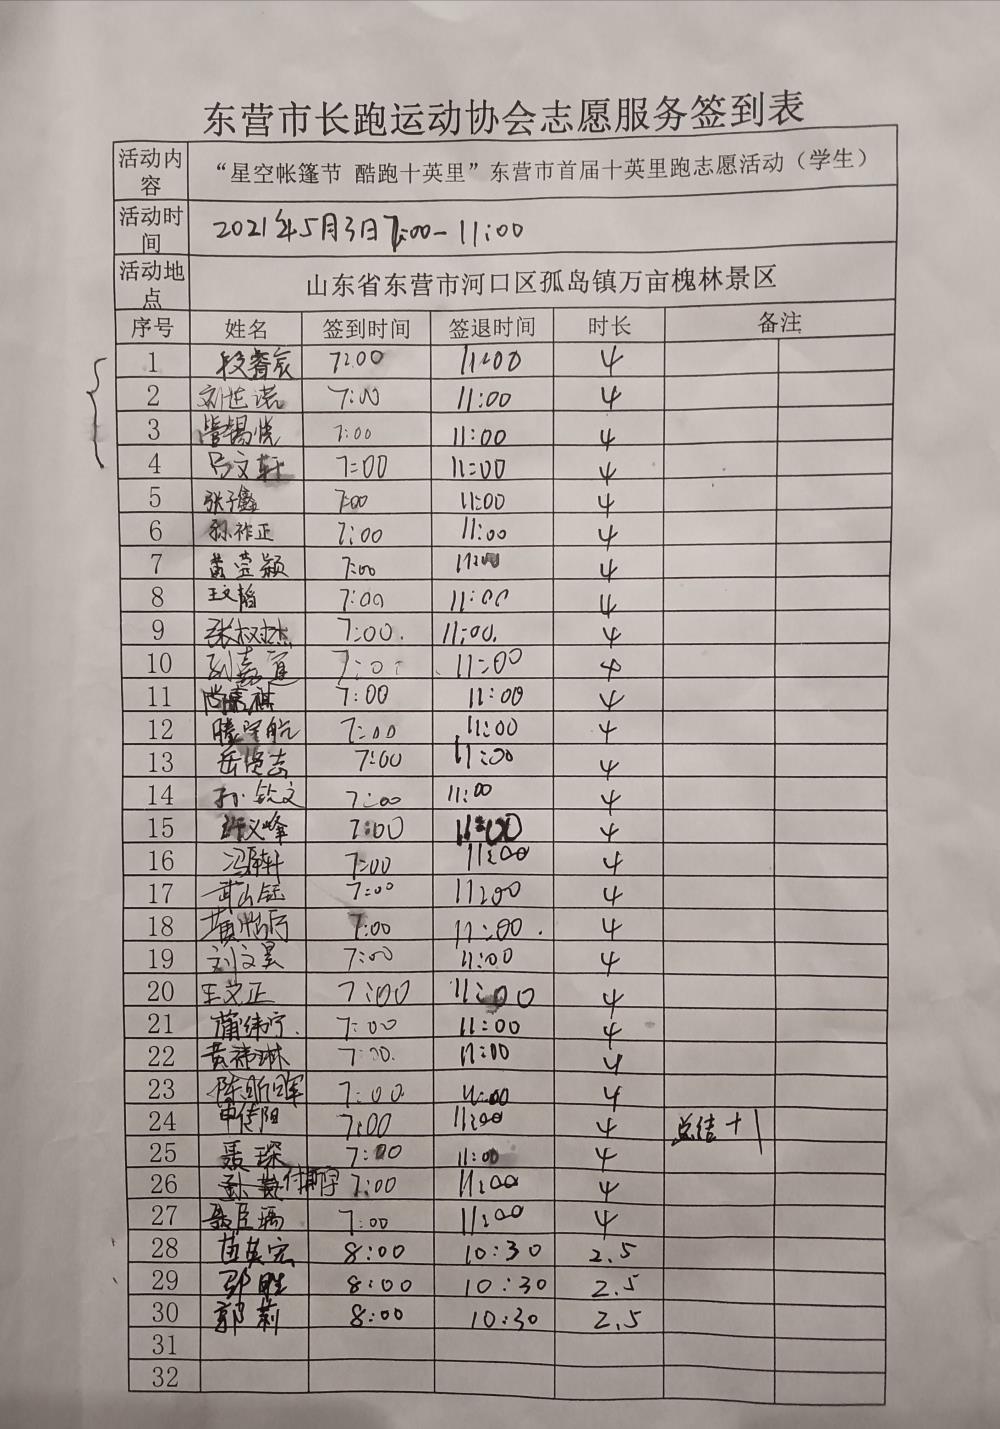 东营市长跑运动协会志愿服务签到表
活动内容 “星空帐篷节 酷跑十英里”东营市首届十英里跑志愿活动（学生）
活动时间 2021年5月3日7:00-11:00
活动地点 山东省东营市河口区孤岛镇万亩槐林景区
序号 姓名 签到时间 签退时间 时长 备注
1 段睿宸 7:00 11:00 4
2 7:00 11:00 4
3 7:00 11:00 4
4 马文轩 7:00 11:00 4
5 张子鑫 7:00 11:00 4
6 孙祚正 7:00 11:00 4
7 黄莹颖 7:00 11:00 4
8 王文韬 7:00 11:00 4
9 张树杰 7:00. 11:00. 4
10 7:00 11:00 4
11 7:00 11:00 4
12 滕宇航 7:00 11:00 4
13 7:00 11:00 4
14 孙铳文 7:00 11:00 4
15 许义峰 7:00 11:00 4
16 7:00 11:00 4
17 7:00 11:00 4
18 7:00 11:00. 4
19 刘文昊 7:00 11:00 4
20 王文正 7:00 11:00 4
21 7:00 11:00 4
22 黄祎琳 7:00. 11:00 4
23 陈昕晖 7:00 11:00 4
24 7:00 11:00 4 总结+1
25 聂琛 7:00 11:00 4
26 付斯宇 7:00 11:00 4
27 聂臣瑀 7:00 11:00 4
28 苗英宏 8:00 10:30 2.5
29 邵胜 8:00 10:30 2.5
30 郭莉 8:00 10:30 2.5
31
32